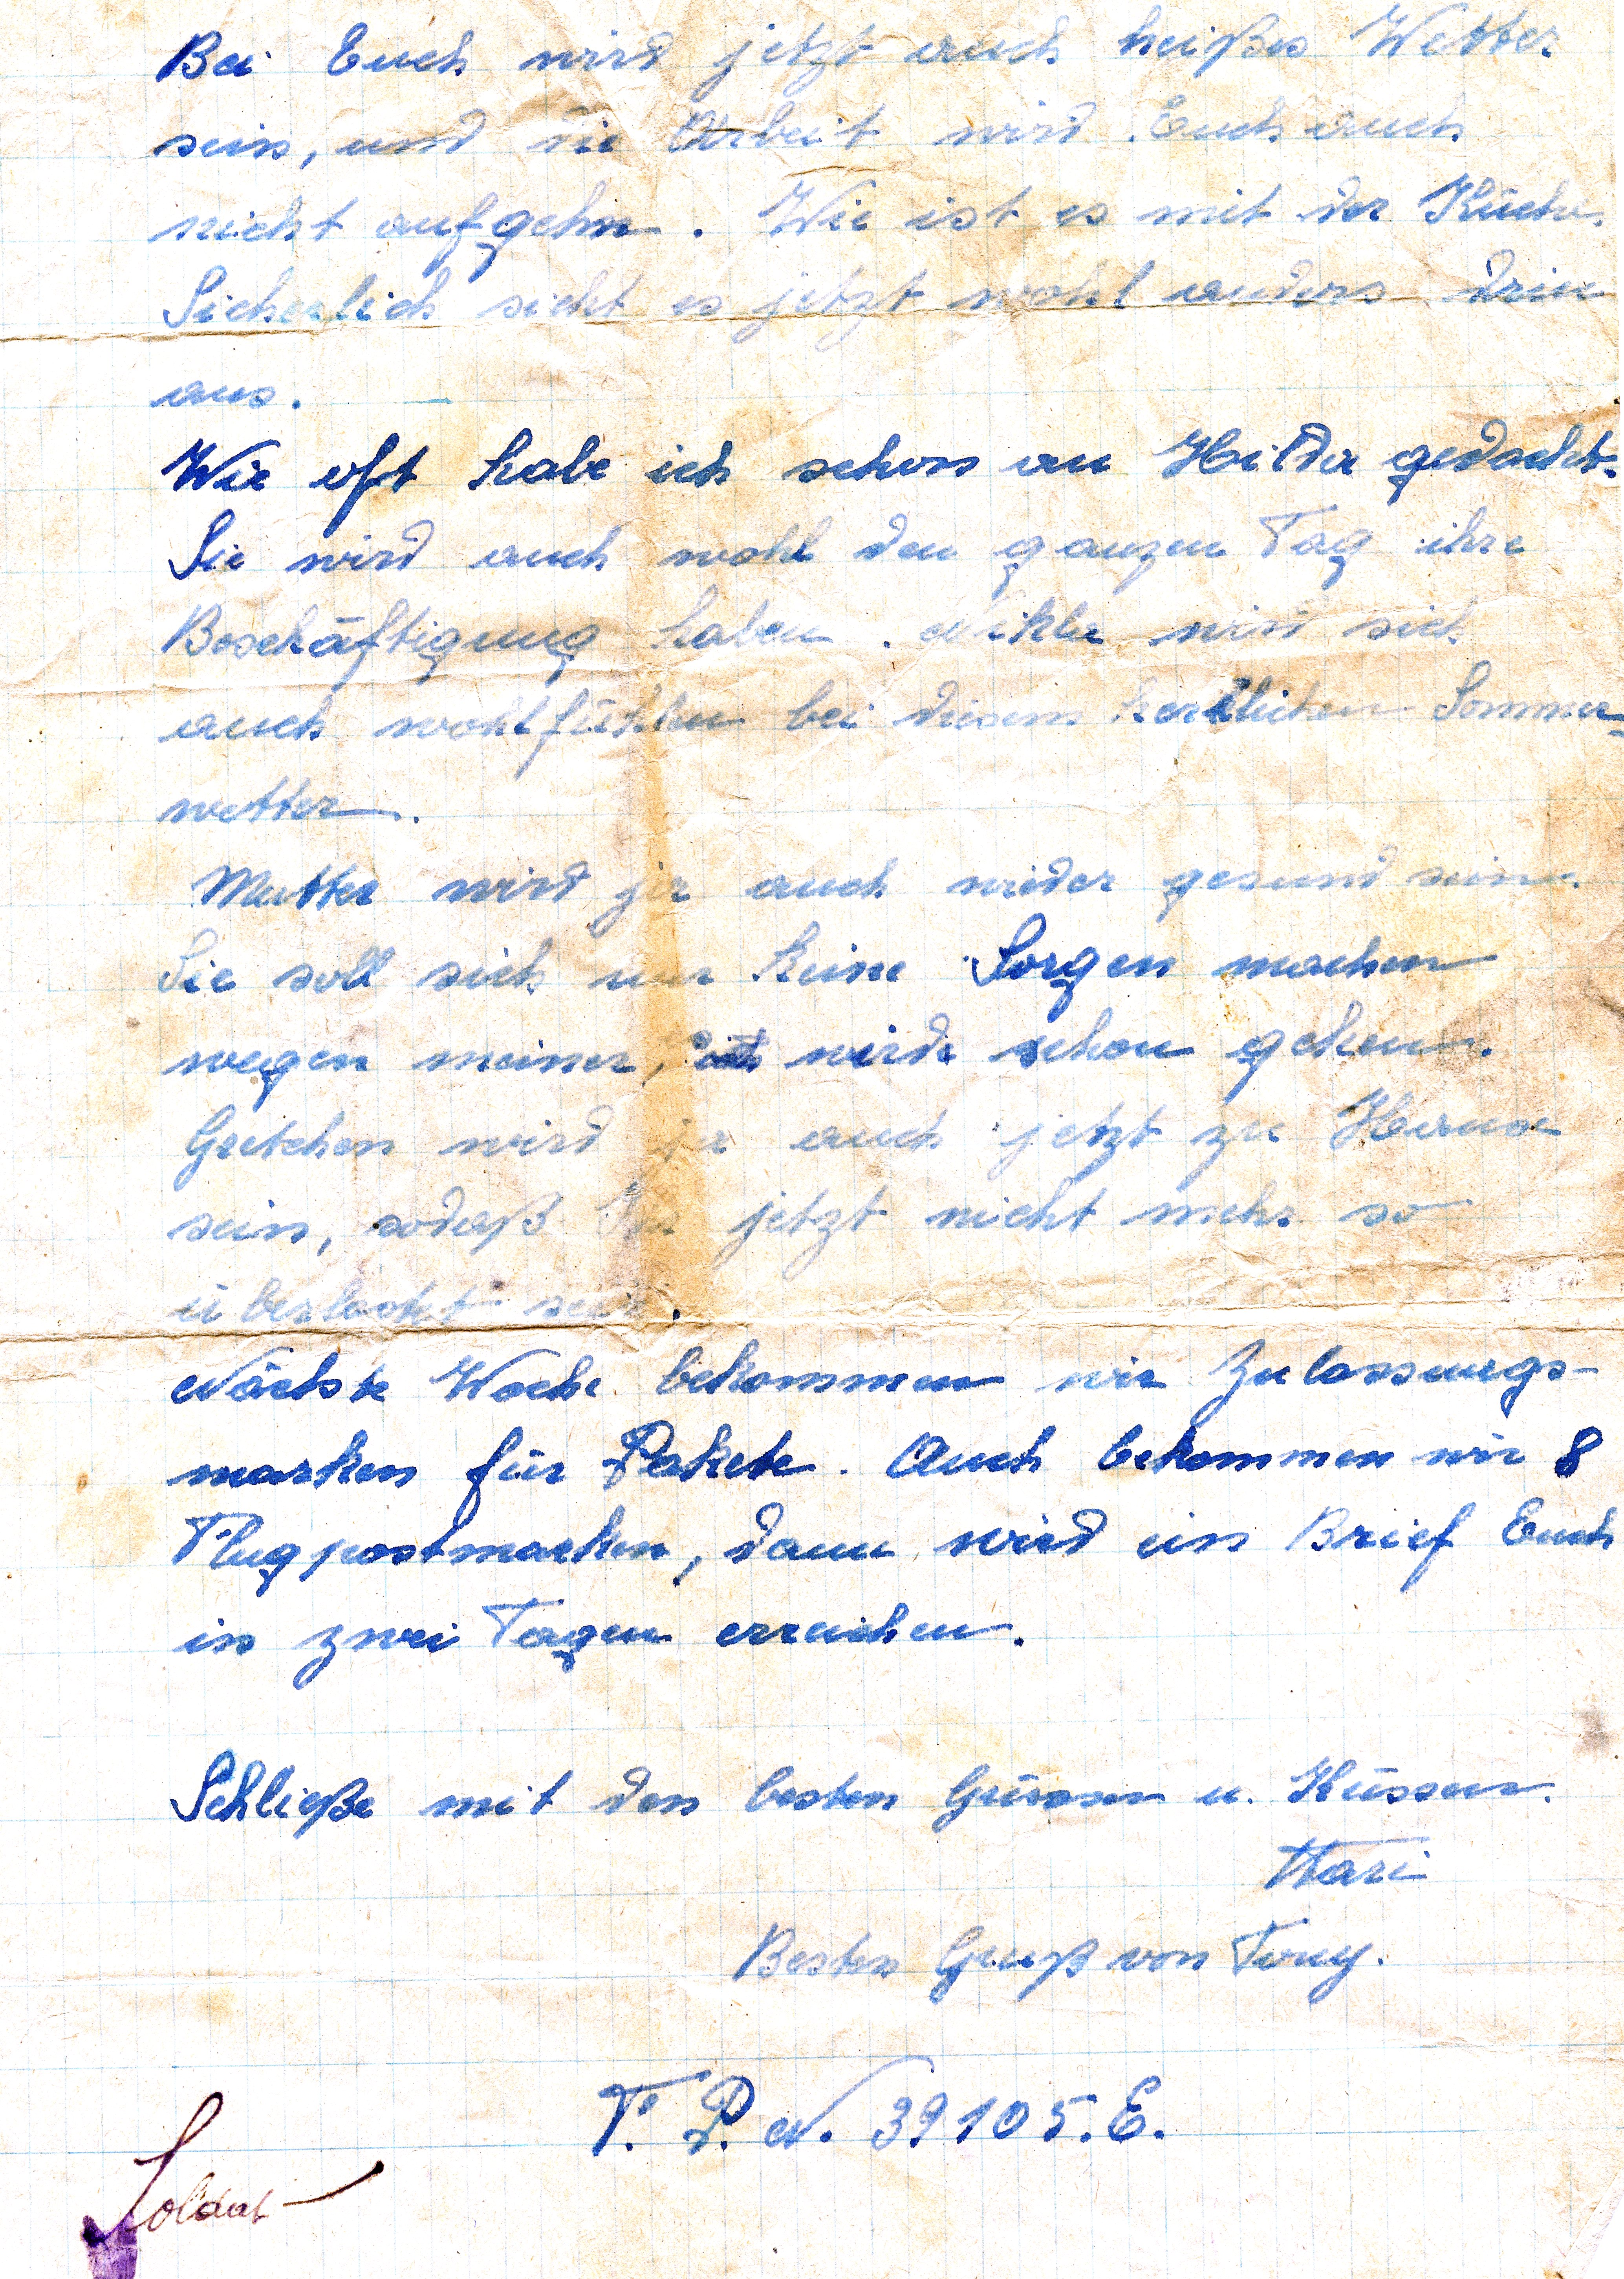 Bei Euch wird jetzt auch heißes Wetter
sein, und die Arbeit wird Euch auch
nicht aufgehn. Wie ist es mit der Küche.
Sicherlich sieht es jetzt wohl anders drin
aus.
Wie oft habe ich schon an Hilda gedacht.
Sie wird auch wohl den ganzen Tag ihre
Beschäftigung haben. wird sich
auch wohlfühlen bei diesem herrlichen Sommer-
wetter.
Mutter wird ja auch wieder gesund sein.
Sie soll sich nur keine Sorgen machen
wegen meiner, wird schon gehen.
Gretchen wird ja auch jetzt zu Hause
sein, sodaß Ihr jetzt nicht mehr so
überlastet seid.
Nächste Woche bekommen wir Zulassungs-
marken für Pakete. Auch bekommen wir 8
Flugpostmarken, dann wird ein Brief Euch
in zwei Tagen erreichen.
Schließe mit den besten Grüssen u. Küssen.
Besten Gruß von Tony.
F. P. N. 39105. E.
Soldat